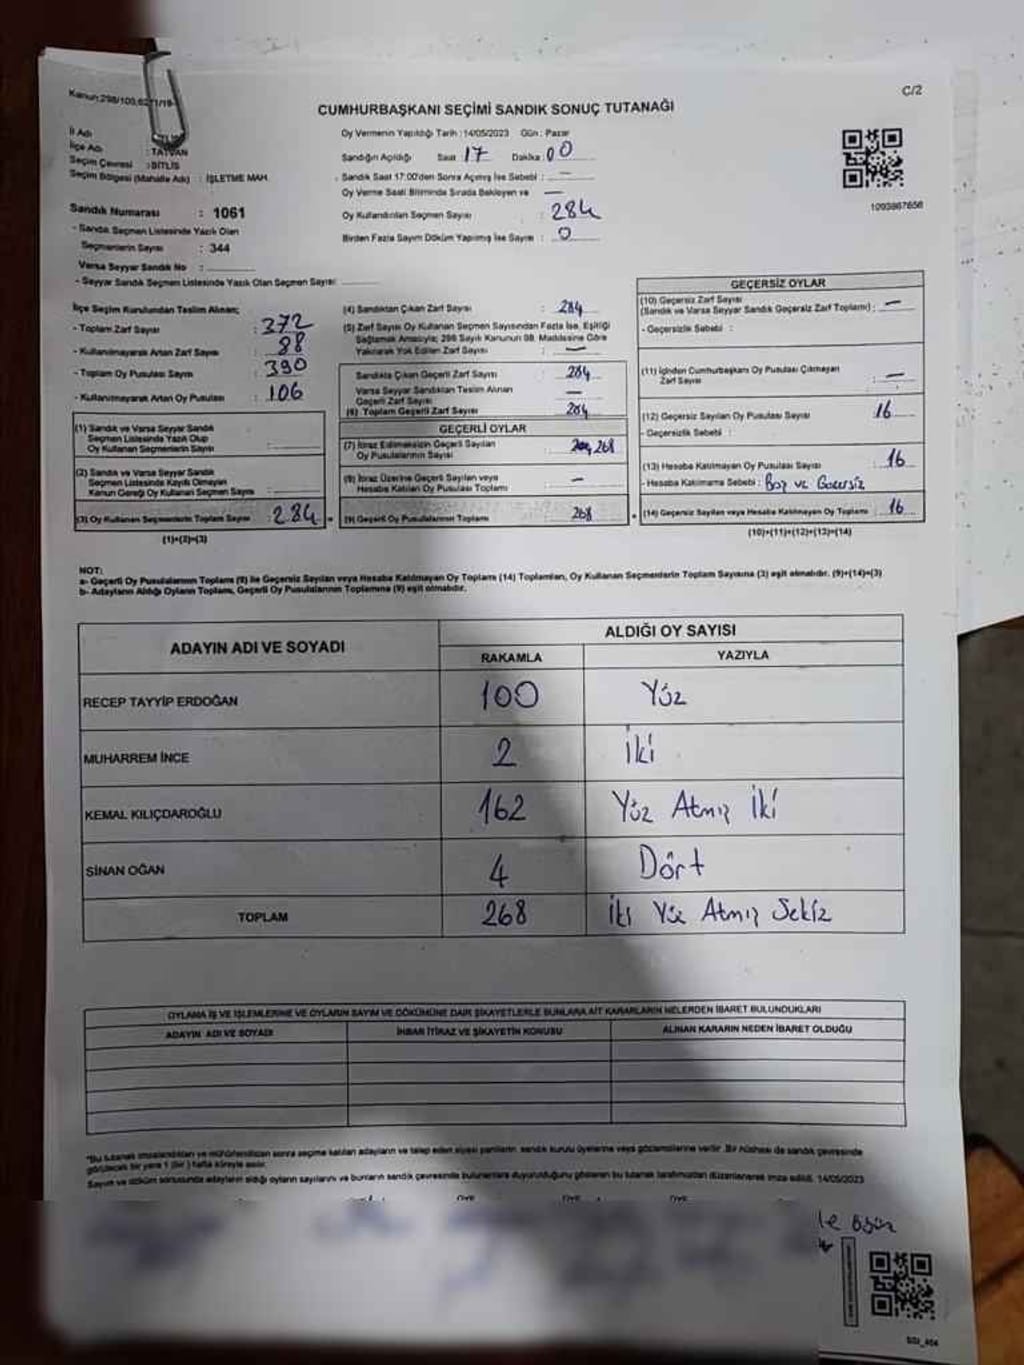 C/2
CUMHURBAŞKANI SEÇİMİ SANDIK SONUÇ TUTANAĞI
İl Adı
İlçe Adı : TATVAN
Seçim Çevresi : BİTLİS
Seçim Bölgesi (Mahalle Adı) : İŞLETME MAH.
Sandık Numarası : 1061
- Sandık Seçmen Listesinde Yazılı Olan
Seçmenlerin Sayısı : 344
Varsa Seyyar Sandık No :
- Seyyar Sandık Seçmen Listesinde Yazılı Olan Seçmen Sayısı:
Oy Vermenin Yapıldığı Tarih : 14/05/2023 Gün : Pazar
Sandığın Açıldığı Saat : 17 Dakika : 00
- Sandık Saat 17:00'den Sonra Açılmış İse Sebebi : —
Oy Verme Saati Bitiminde Sırada Bekleyen ve —
Oy Kullandırılan Seçmen Sayısı : 284
Birden Fazla Sayım Döküm Yapılmış İse Sayısı : 0
1093867656
İlçe Seçim Kurulundan Teslim Alınan;
- Toplam Zarf Sayısı : 372
- Kullanılmayarak Artan Zarf Sayısı : 88
- Toplam Oy Pusulası Sayısı : 390
- Kullanılmayarak Artan Oy Pusulası : 106
(1) Sandık ve Varsa Seyyar Sandık
Seçmen Listesinde Yazılı Olup
Oy Kullanan Seçmenlerin Sayısı :
(2) Sandık ve Varsa Seyyar Sandık
Seçmen Listesinde Kaydı Olmayan
Kanun Gereği Oy Kullanan Seçmen Sayısı :
(3) Oy Kullanan Seçmenlerin Toplam Sayısı : 284
(1)+(2)=(3)
(4) Sandıktan Çıkan Zarf Sayısı : 284
(5) Zarf Sayısı Oy Kullanan Seçmen Sayısından Fazla İse, Eşitliği
Sağlamak Amacıyla; 298 Sayılı Kanunun 98. Maddesine Göre
Yakılarak Yok Edilen Zarf Sayısı : —
Sandıkta Çıkan Geçerli Zarf Sayısı : 284
Varsa Seyyar Sandıktan Teslim Alınan
Geçerli Zarf Sayısı : —
(6) Toplam Geçerli Zarf Sayısı : 284
GEÇERLİ OYLAR
(7) İtiraz Edilmeksizin Geçerli Sayılan
Oy Pusulalarının Sayısı : 268
(8) İtiraz Üzerine Geçerli Sayılan veya
Hesaba Katılan Oy Pusulası Toplamı : —
(9) Geçerli Oy Pusulalarının Toplamı : 268
GEÇERSİZ OYLAR
(10) Geçersiz Zarf Sayısı
(Sandık ve Varsa Seyyar Sandık Geçersiz Zarf Toplamı) : —
- Geçersizlik Sebebi :
(11) İçinden Cumhurbaşkanı Oy Pusulası Çıkmayan
Zarf Sayısı : —
(12) Geçersiz Sayılan Oy Pusulası Sayısı : 16
- Geçersizlik Sebebi :
(13) Hesaba Katılmayan Oy Pusulası Sayısı : 16
- Hesaba Katılmama Sebebi : Boş ve Geçersiz
(14) Geçersiz Sayılan veya Hesaba Katılmayan Oy Toplamı : 16
(10)+(11)+(12)+(13)=(14)
NOT:
a- Geçerli Oy Pusulalarının Toplamı (9) ile Geçersiz Sayılan veya Hesaba Katılmayan Oy Toplamı (14) Toplamları, Oy Kullanan Seçmenlerin Toplam Sayısına (3) eşit olmalıdır. (9)+(14)=(3)
b- Adayların Aldığı Oyların Toplamı, Geçerli Oy Pusulalarının Toplamına (9) eşit olmalıdır.
ADAYIN ADI VE SOYADI
ALDIĞI OY SAYISI
RAKAMLA YAZIYLA
RECEP TAYYİP ERDOĞAN 100 Yüz
MUHARREM İNCE 2 İki
KEMAL KILIÇDAROĞLU 162 Yüz Atmış İki
SİNAN OĞAN 4 Dört
TOPLAM 268 İki Yüz Atmış Sekiz
OYLAMA İŞ VE İŞLEMLERİNE VE OYLARIN SAYIM VE DÖKÜMÜNE DAİR ŞİKAYETLERLE BUNLARA AİT KARARLARIN NELERDEN İBARET BULUNDUKLARI
ADAYIN ADI VE SOYADI
İHBAR İTİRAZ VE ŞİKAYETİN KONUSU
ALINAN KARARIN NEDEN İBARET OLDUĞU
*Bu tutanak imzalandıktan ve mühürlendikten sonra seçime katılan adayların ve talep eden siyasi partilerin sandık kurulu üyelerine veya gözlemcilerine verilir. Bir nüshası da sandık çevresinde
görülecek bir yere 1 (bir) hafta süreyle asılır.
Sayım ve döküm sonucunda adayların aldığı oyların sayılarını ve bunların sandık çevresinde bulunanlara duyurulduğunu gösteren bu tutanak tarafımızdan düzenlenerek imza edildi. 14/05/2023